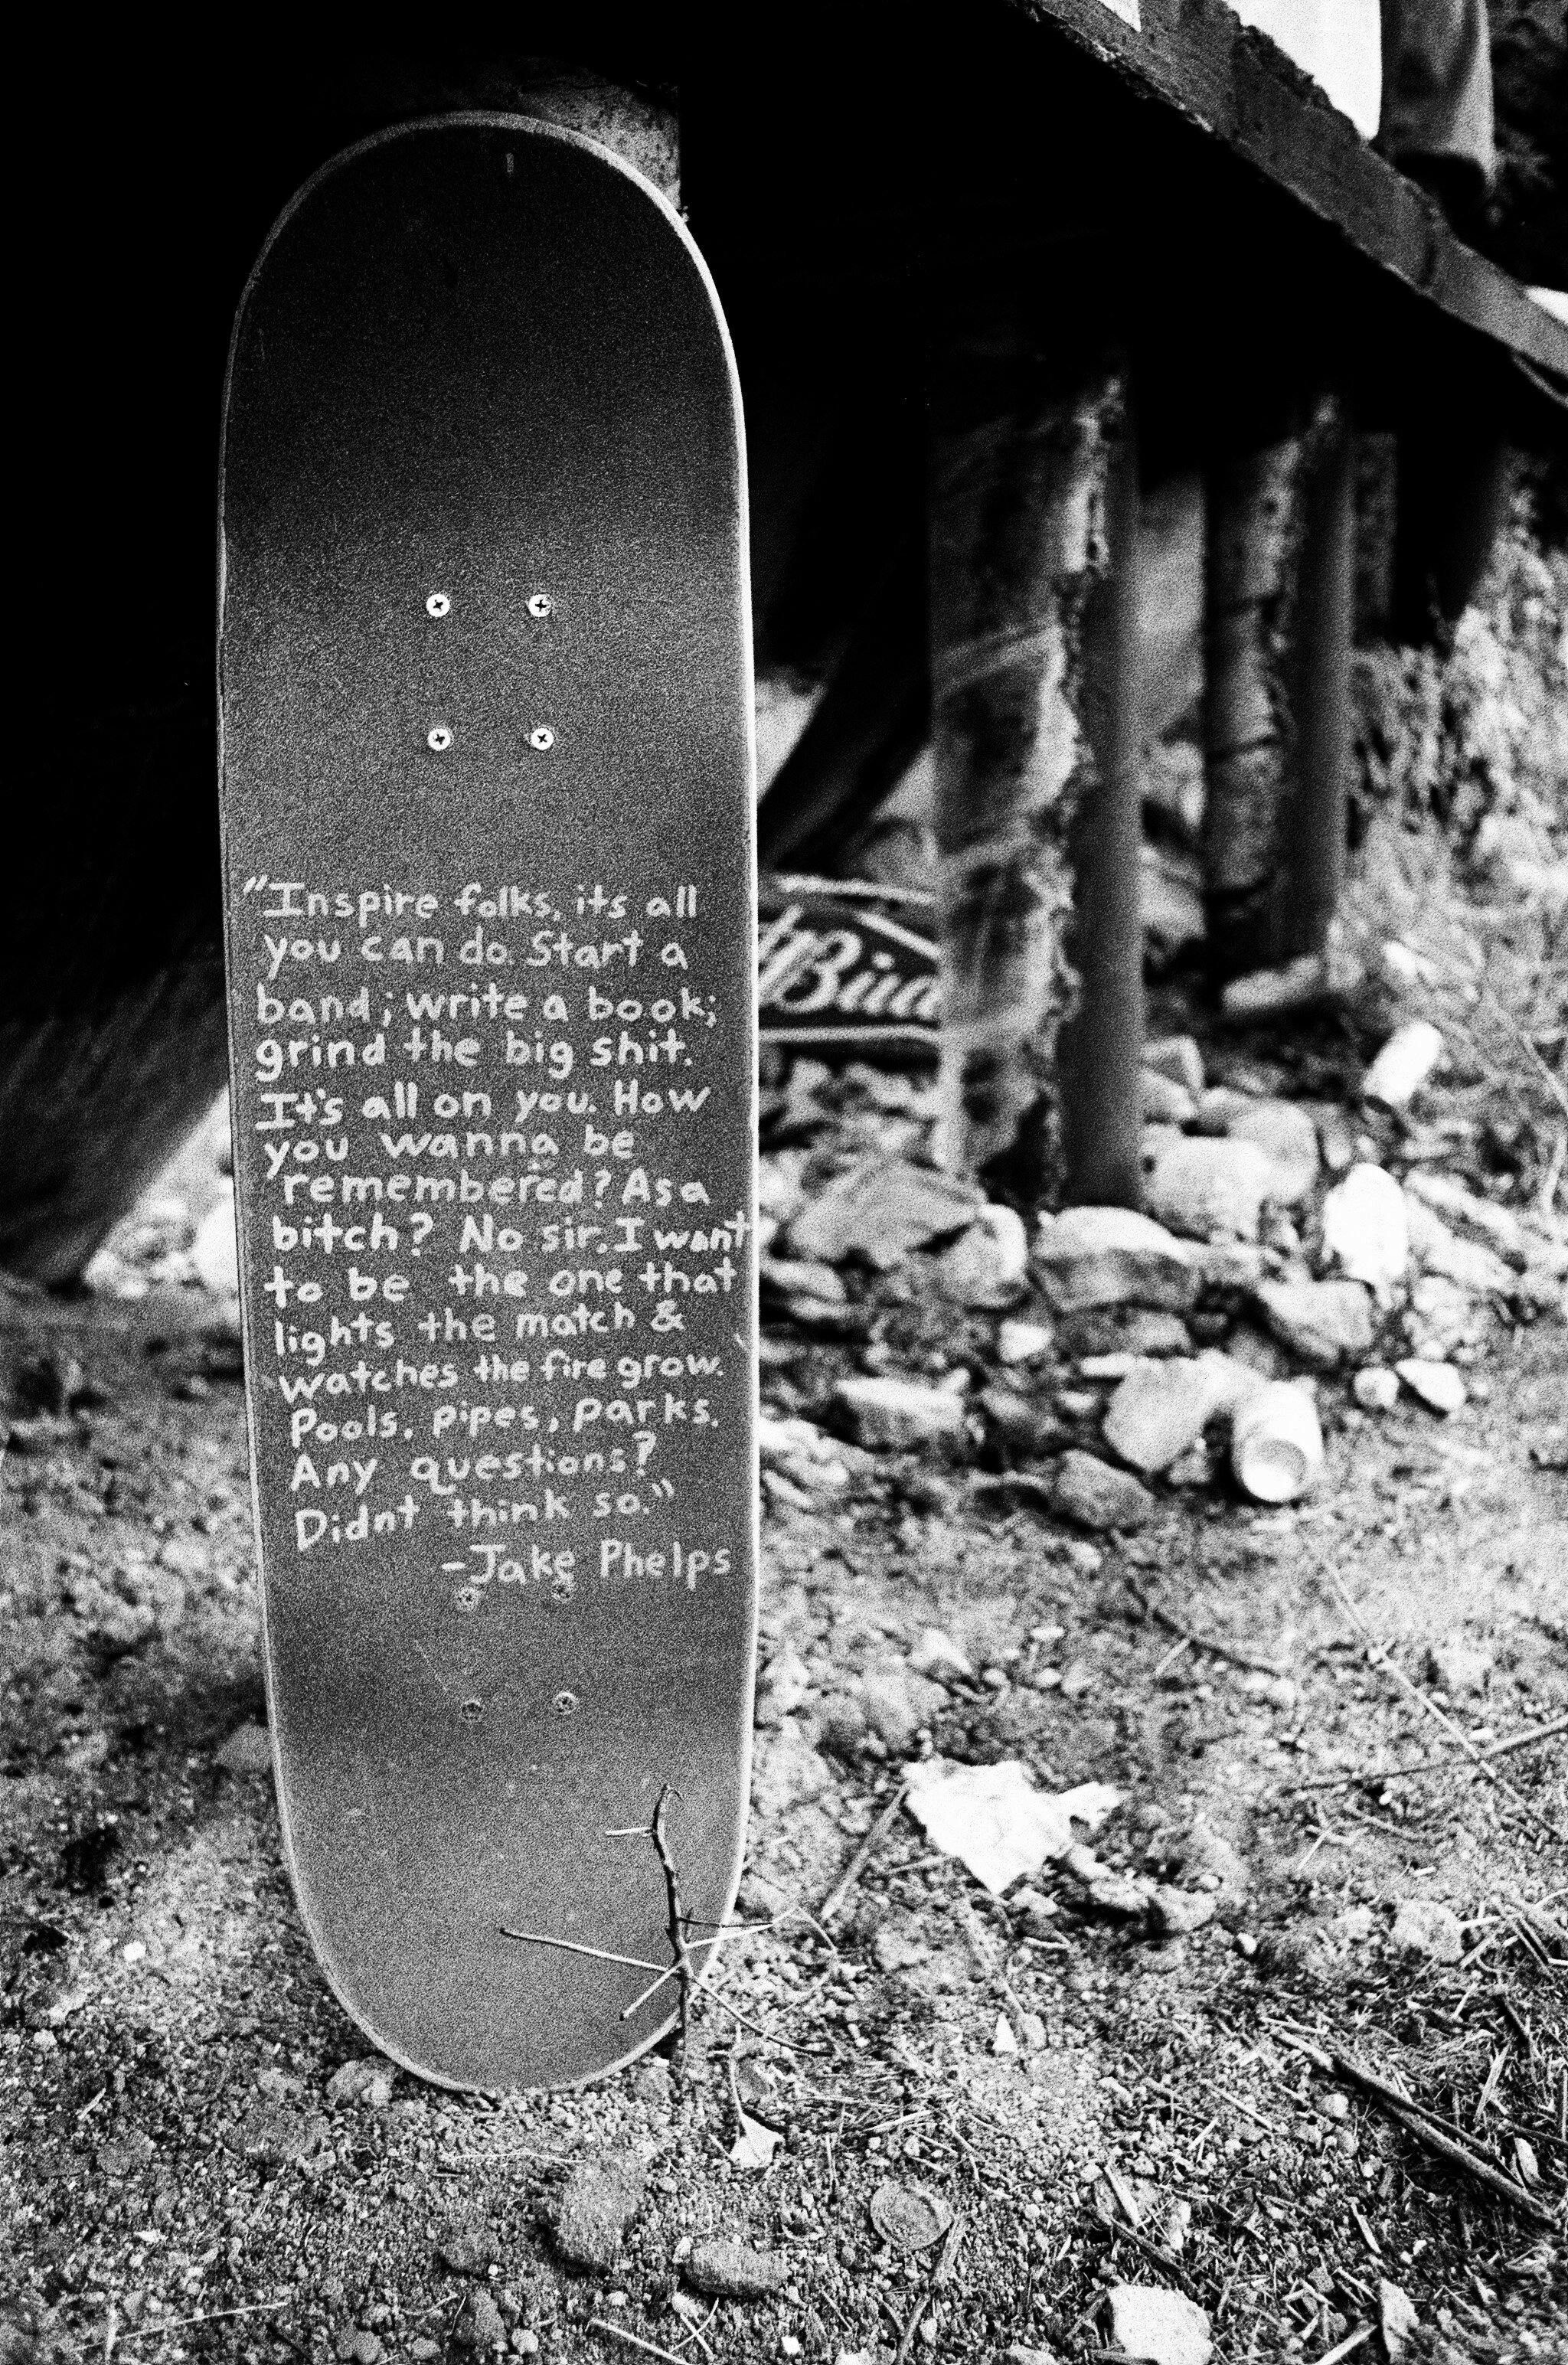 "Inspire folks, its all
you can do. Start a
band; write a book;
grind the big shit.
It's all on you. How
you wanna be
remembered? As a
bitch? No sir. I want
to be the one that
lights the match &
watches the fire grow.
Pools, pipes, parks.
Any questions?
Didnt think so."
-Jake Phelps